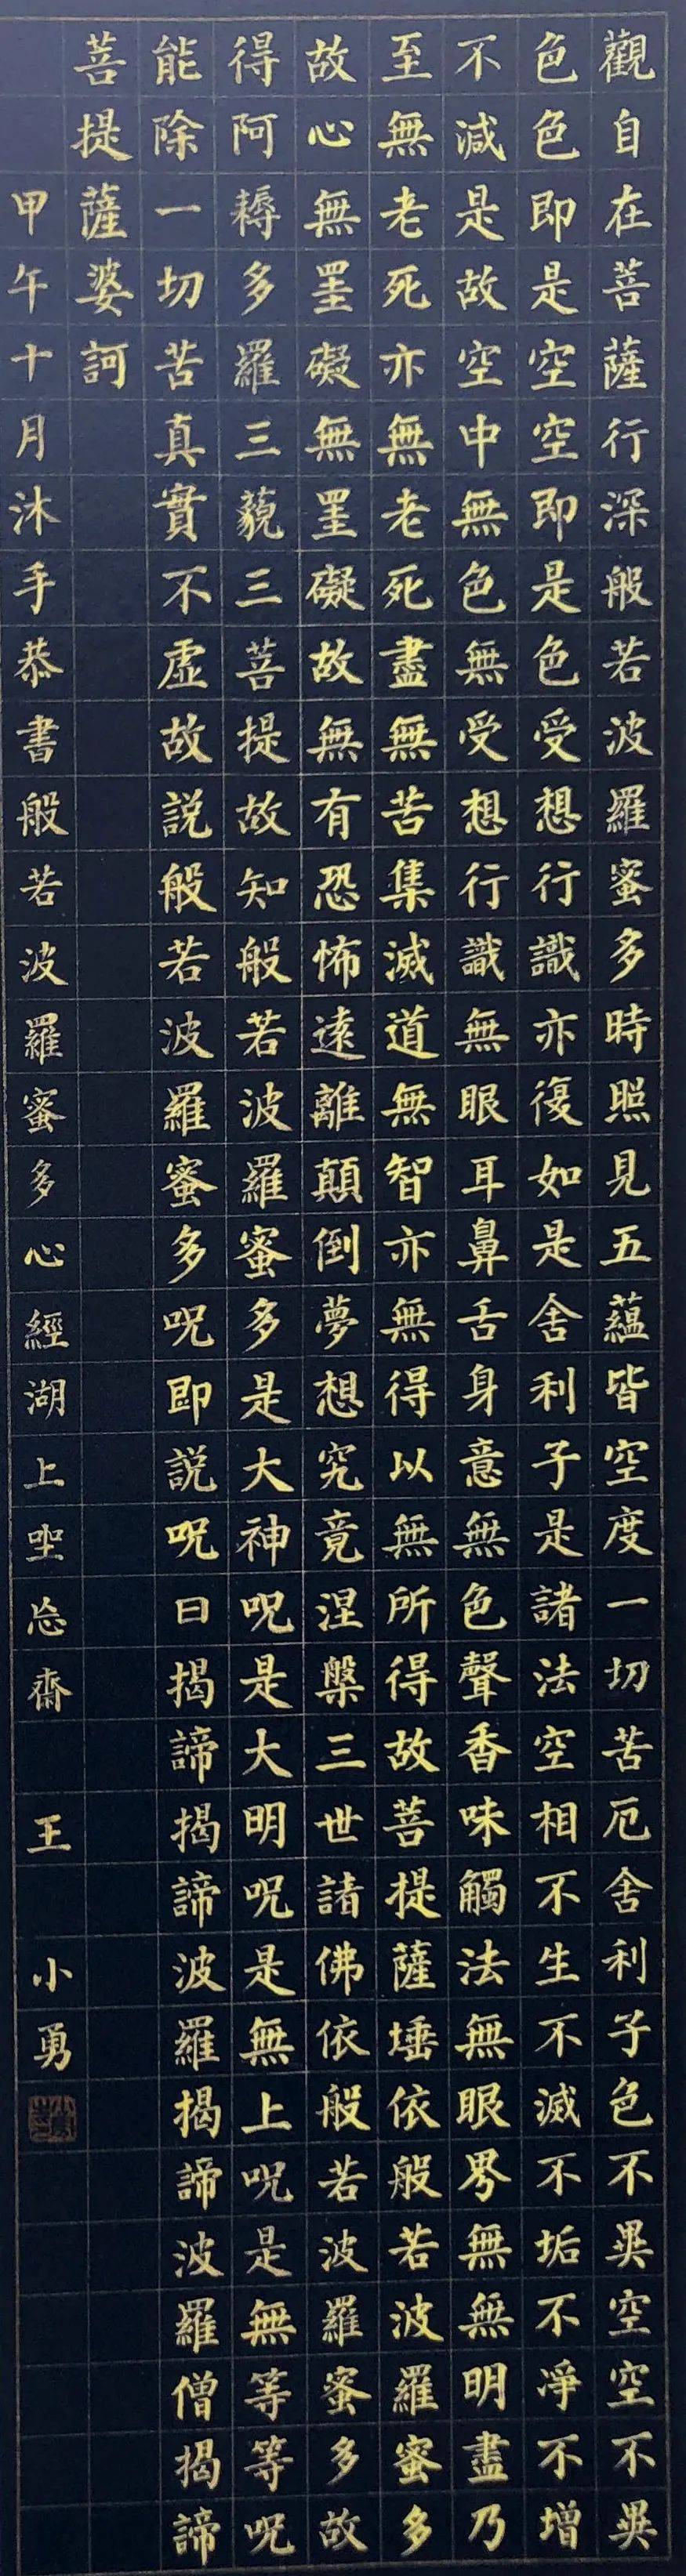 觀自在菩薩行深般若波羅蜜多時照見五蘊皆空度一切苦厄舍利子色不異空空不異
色色即是空空即是色受想行識亦復如是舍利子是諸法空相不生不滅不垢不淨不增
不減是故空中無色無受想行識無眼耳鼻舌身意無色聲香味觸法無眼界無無明盡乃
至無老死亦無老死盡無苦集滅道無智亦無得以無所得故菩提薩埵依般若波羅蜜多
故心無罣礙無罣礙故無有恐怖遠離顛倒夢想究竟涅槃三世諸佛依般若波羅蜜多故
得阿耨多羅三藐三菩提故知般若波羅蜜多是大神呪是大明呪是無上呪是無等等呪
能除一切苦真實不虛故説般若波羅蜜多呪即説呪曰揭諦揭諦波羅揭諦波羅僧揭諦
菩提薩婆訶
甲午十月沐手恭書般若波羅蜜多心經湖上坐忘齋 王 小勇